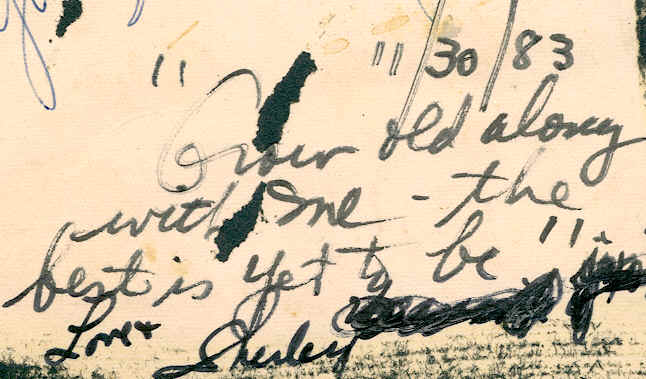 " 30/83
"Grow old along
with me - the
best is yet to be"
Love
Shirley